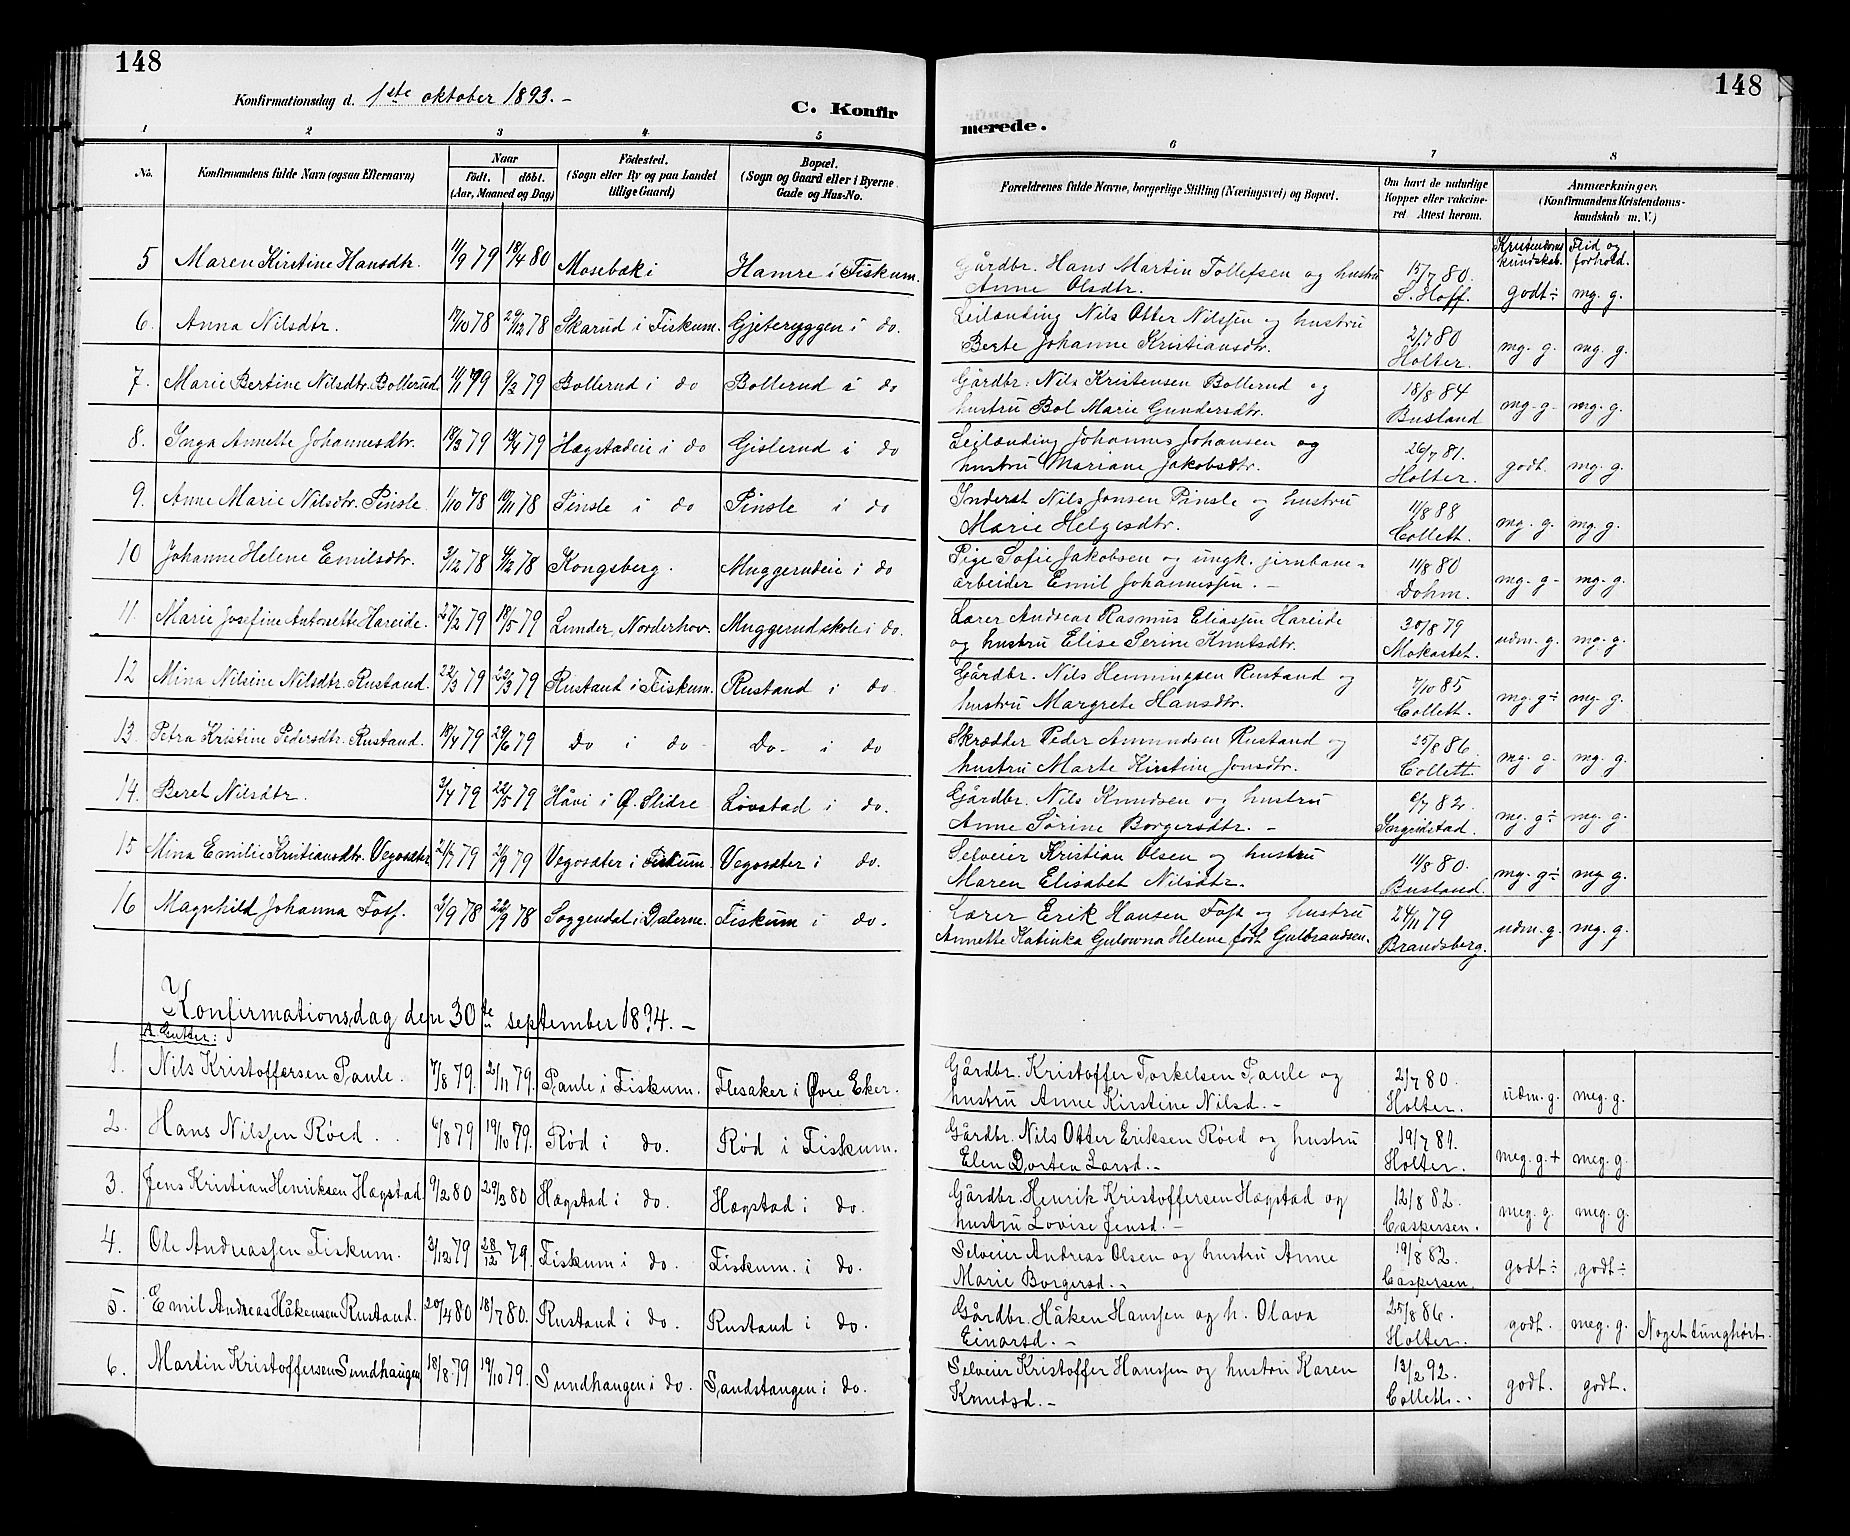 148
148
Konfirmationsdag d. 1ste oktober 1893. -
C. Konfir
merede.
1 2 3 4 5 6 7 8
No. Konfirmandens fulde Navn (ogsaa Efternavn) Naar født. døbt. (Aar, Maaned og Dag) Fødested. (Sogn eller By og paa Landet tillige Gaard) Bopæl. (Sogn og Gaard eller i Byerne Gade og Hus-No. Forældrenes fulde Navne, borgerlige Stilling (Næringsvei) og Bopæl. Om havt de naturlige Kopper eller vakcineret Attest herom. Anmærkninger. (Konfirmandens Kristendomskundskab m. V.)
Kristendoms kundskab. Flid og forhold.
5 Maren Kirstine Hansdtr. 11/9 79 18/4 80 Mosebæk i Hamre i Fiskum. Gårdbr. Hans Martin Tollefsen og hustru 15/7 80.
Anne Olsdtr. S. Hoff. godt÷ mg. g.
6. Anna Nilsdtr. 17/10 78 29/12 78 Skarud i Fiskum. Gjeteryggen i do. Leilænding Nils Otter Nilssen og hustru 2/7 80
Berte Johanne Kristiansdtr. Holter. mg. g. mg. g.
7. Marie Bertine Nilsdtr. Bollerud 11/1 79 9/2 79 Bollerud i do Bollerud i do Gårdbr. Nils Kristensen Bollerud og 18/8 84
hustru Bol Marie Gundersdtr. Busland mg. g. mg. g.
8. Inga Annette Johannesdtr. 18/3 79 14/4 79 Hægstadeie i do Gislerud i do Leilænding Johannes Johansen og 26/7 81.
hustru Mariane Jakobsdtr. Holter. godt. mg. g.
9. Anne Marie Nilsdtr. Pinsle. 1/10 78 10/11 78 Pinsle i do Pinsle i do Inderst Nils Jonsen Pinsle og hustru 11/8 88
Marie Helgesdtr. Collett. mg. g. mg. g.
10 Johanne Helene Emilsdtr. 3/12 78 4/12 78 Kongsberg. Muggerudeie i do Pige Sofie Jakobsen og ungk. jernbane-
arbeider Emil Johannessen. - 11/8 80 Dohm. mg. g. mg. g.
11. Marie Josefine Antonette Hareide. 27/2 79 18/5 79 Lunder, Norderhov. Muggerud skole i do. Lærer Andreas Rasmus Eliassen Hareide 30/8 79
og hustru Elise Serine Knutsdtr. Mokastet. udm. g. mg. g.
12 Mina Nilsine Nilsdtr. Rustand. 22/3 79 23/3 79 Rustand i Fiskum. Rustand i do Gårdbr. Nils Henningsen Rustand og 7/10 85
hustru Margrete Hansdtr. Collett. mg. g÷ mg. g.
13. Petra Kristine Pedersdtr. Rustand. 18/4 79 29/6 79 Do i do Do i do Skrædder Peder Amundsen Rustand og 25/8 86.
hustru Marte Kirstine Jonsdtr. Collett. mg. g. mg. g.
14. Beret Nilsdtr. 3/4 79 22/5 79 Håvi i Ø. Slidre Lovstad i do. Gårdbr. Nils Knudsen og hustru 6/7 82.
Anne Sørine Borgersdtr. - Ingridstad. mg. g÷ mg. g.
15 Mina Emilie Kristiansdtr. Vegosæter 21/7 79 21/9 79 Vegosæter i Fiskum. Vegosæter i do. Selveier Kristian Olsen og hustru 11/8 80.
Maren Elisabet Nilsdtr. Busland. mg. g÷ mg g.
16 Magnhild Johanna Foss. 3/9 78 22/9 78 Soggendal i Dalerne. Fiskum i do. Lærer Erik Hansen Foss og hustru 24/11 79
Annette Katinka Gulowna Helene født Gulbrandsen. Brandsberg. udm. g. mg. g.
Konfirmationsdag den 30te september 1894. -
A. Gutter:
1. Nils Kristoffersen Paule. 7/8 79. 2/11 79. Paule i Fiskum. Flesaker i Øvre Eker. Gårdbr. Kristoffer Torkelsen Paule og 2/7 80.
hustru Anne Kirstine Nilsd. - Holter. udm. g. meg. g.
2. Hans Nilssen Røed. 6/8 79 19/10 79. Rød i do. Rød i Fiskum. Gårdbr. Nils Otter Eriksen Røed og hustru 19/7 81.
Elen Dorten Larsd. - Holter. meg. g+ meg. g.
3. Jens Kristian Henriksen Hægstad. 9/2 80 29/3 80 Hægstad i do. Hægstad i do. Gårdbr. Henrik Kristoffersen Hægstad og 12/8 82.
hustru Lovise Jensd. - Caspersen. meg. g. meg. g.
4. Ole Andreassen Fiskum. 3/12 79 28/12 79. Fiskum i do. Fiskum. i do. Selveier Andreas Olsen og hustru Anne 19/8 82.
Marie Borgersd. - Caspersen. godt÷ godt÷
5. Emil Andreas Håkensen Rustand. 20/4 80 18/7 80. Rustand i do. Rustand i do. Gårdbr. Håken Hanssen og h. Olava 25/8 86.
Einarsd. - Holter. godt. meg. g. Noget tunghørt.
6. Martin Kristoffersen Sundhaugen 18/8 79 19/10 79. Sundhaugen i do. Sandstangen i do. Selveier Kristoffer Hanssen og hustru Karen 13/2 92.
Knudsd. - Collett. godt. godt.